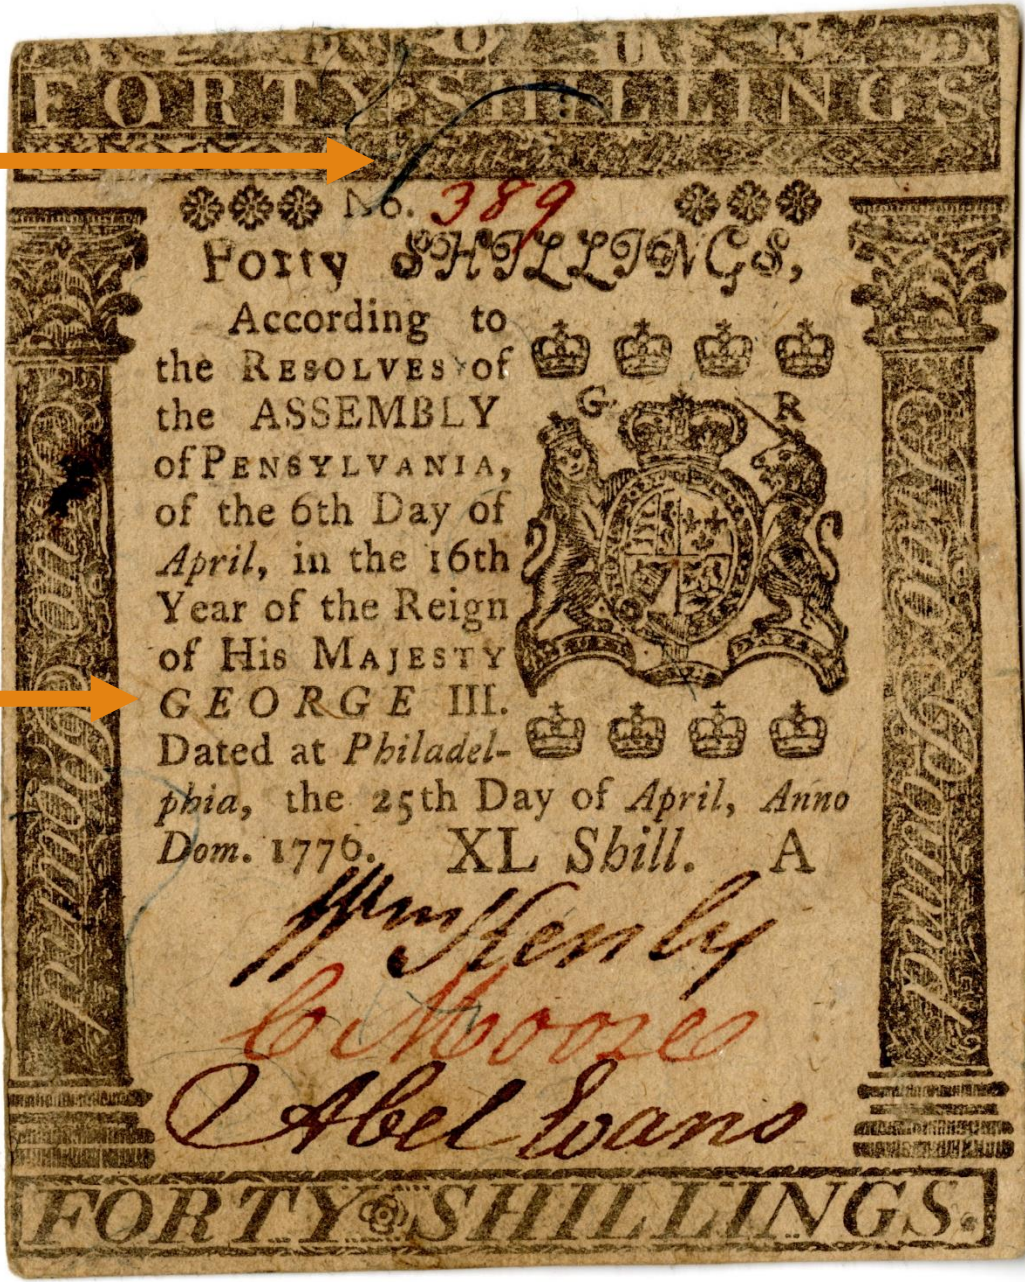 FORTY SHILLINGS
No. 389
Forty SHILLINGS,
According to
the RESOLVES of
the ASSEMBLY
of PENSYLVANIA,
of the 6th Day of
April, in the 16th
Year of the Reign
of His MAJESTY
GEORGE III.
Dated at Philadel-
phia, the 25th Day of April, Anno
Dom. 1776. XL Shill. A
G R
Two Pound
Two Pound
Wm Kenly
C Moore
Abel Evans
FORTY SHILLINGS.